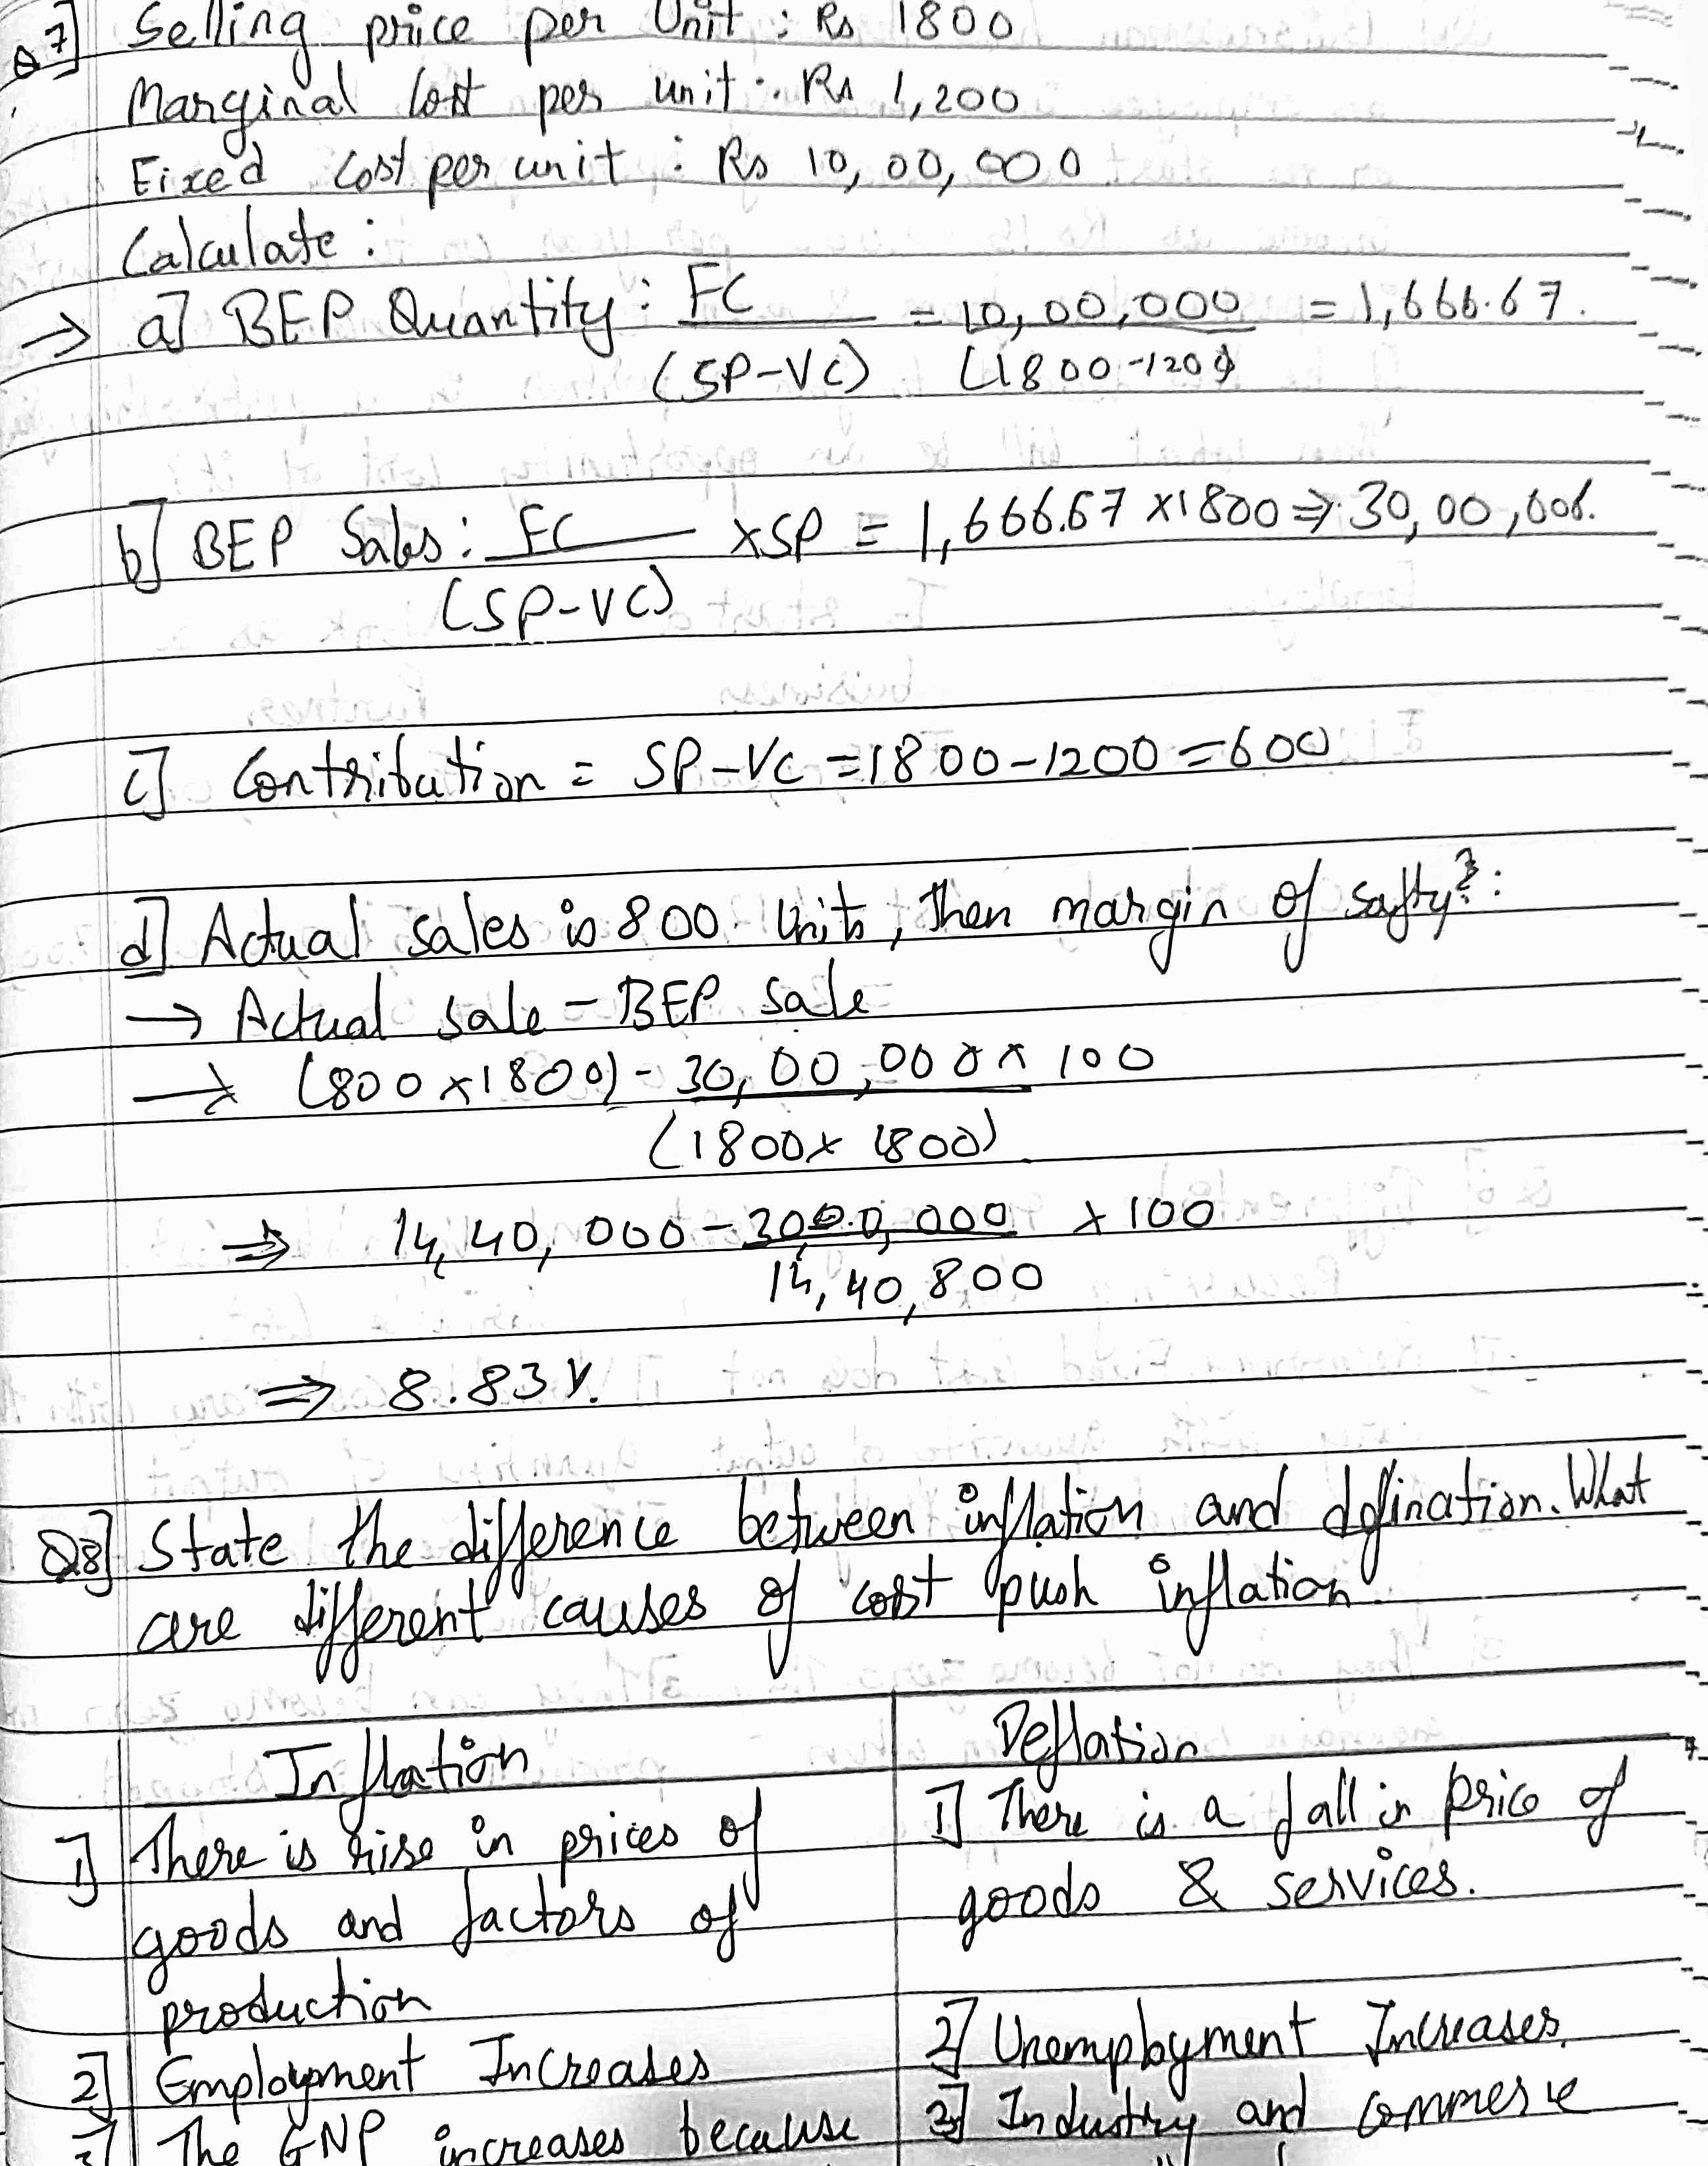 Q7] Selling price per Unit : Rs 1800
Marginal Cost per unit : Rs 1,200
Fixed Cost per unit : Rs 10,00,000
Calculate :
→ a] BEP Quantity : FC / (SP-VC) = 10,00,000 / (1800-1200) = 1,666.67.
b] BEP Sales : FC / (SP-VC) ×SP = 1,666.67 ×1800 ⇒ 30,00,006.
c] Contribution = SP-VC = 1800-1200 = 600
d] Actual sales is 800 Units, Then margin of safty? :
→ Actual sale - BEP sale
→ (800×1800) - 30,00,000 × 100
(1800× 1800)
⇒ 14,40,000 - 3000,000 × 100
14,40,800
⇒ 8.83%.
Q8] State the difference between inflation and defination. What
are different causes of cost push inflation
Inflation
1] There is rise in prices of
goods and factors of
production
2] Employment Increases
3] The GNP increases because
Deflation
1] There is a fall in price of
goods & services.
2] Unemployment Increases.
3] Industry and commerce